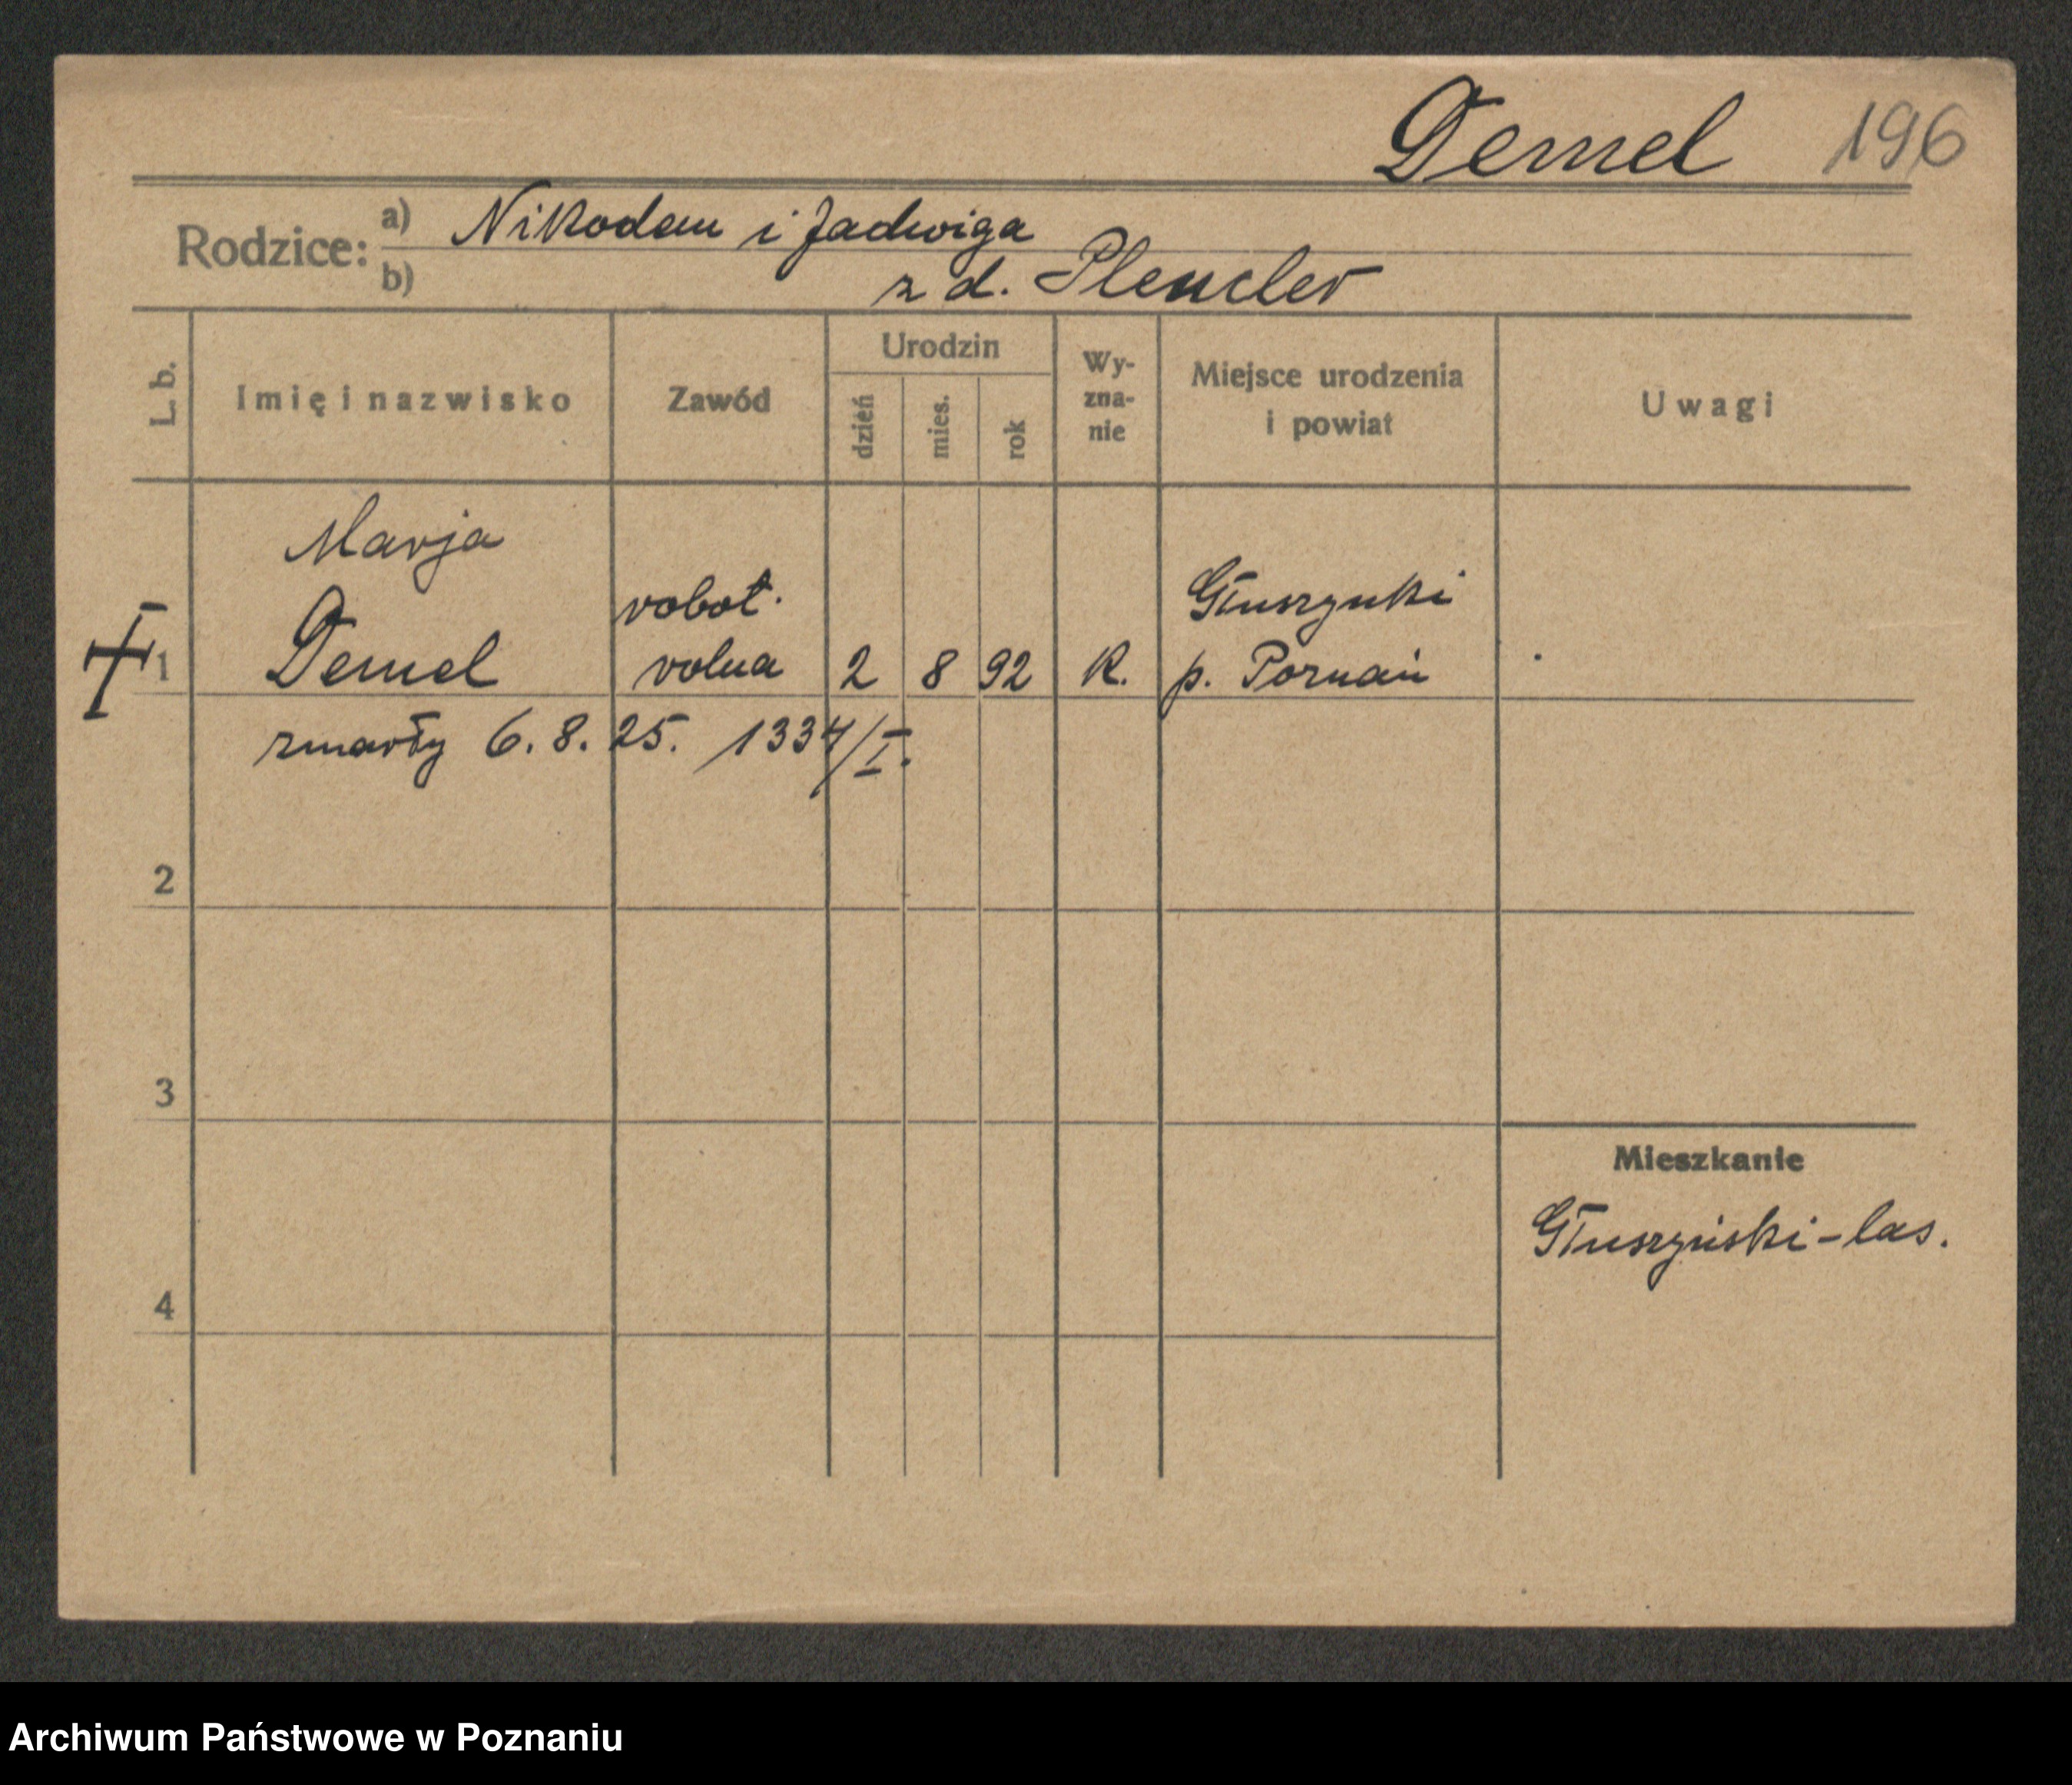 Demel 196
Rodzice: a) Nikodem i Jadwiga
b) z d. Plencler
L. b.
Imię i nazwisko
Zawód
Urodzin
dzień
mies.
rok
Wy-
zna-
nie
Miejsce urodzenia
i powiat
Uwagi
Marja
Demel
robot.
rolna
1
2 8 92 K.
Głuszynki
p. Poznań
zmarły 6.8.25. 1334/I.
2
3
4
Mieszkanie
Głuszyński-las.
Archiwum Państwowe w Poznaniu